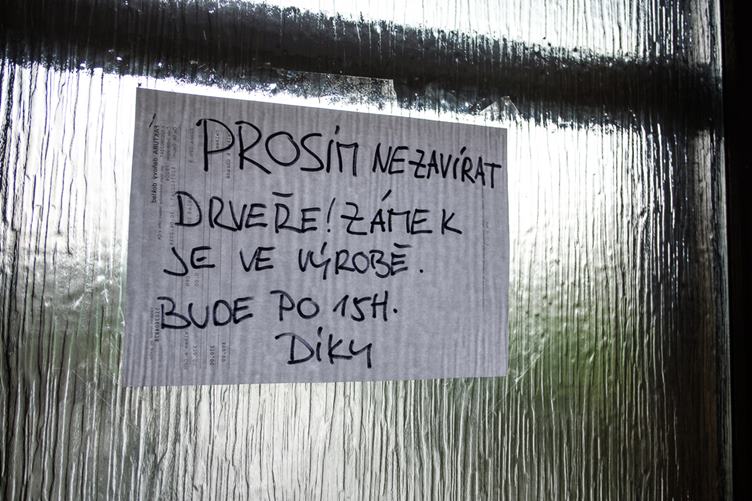 PROSÍM NEZAVÍRAT
DRVEŘE! ZÁMEK
JE VE VÝROBĚ.
BUDE PO 15H.
DÍKY